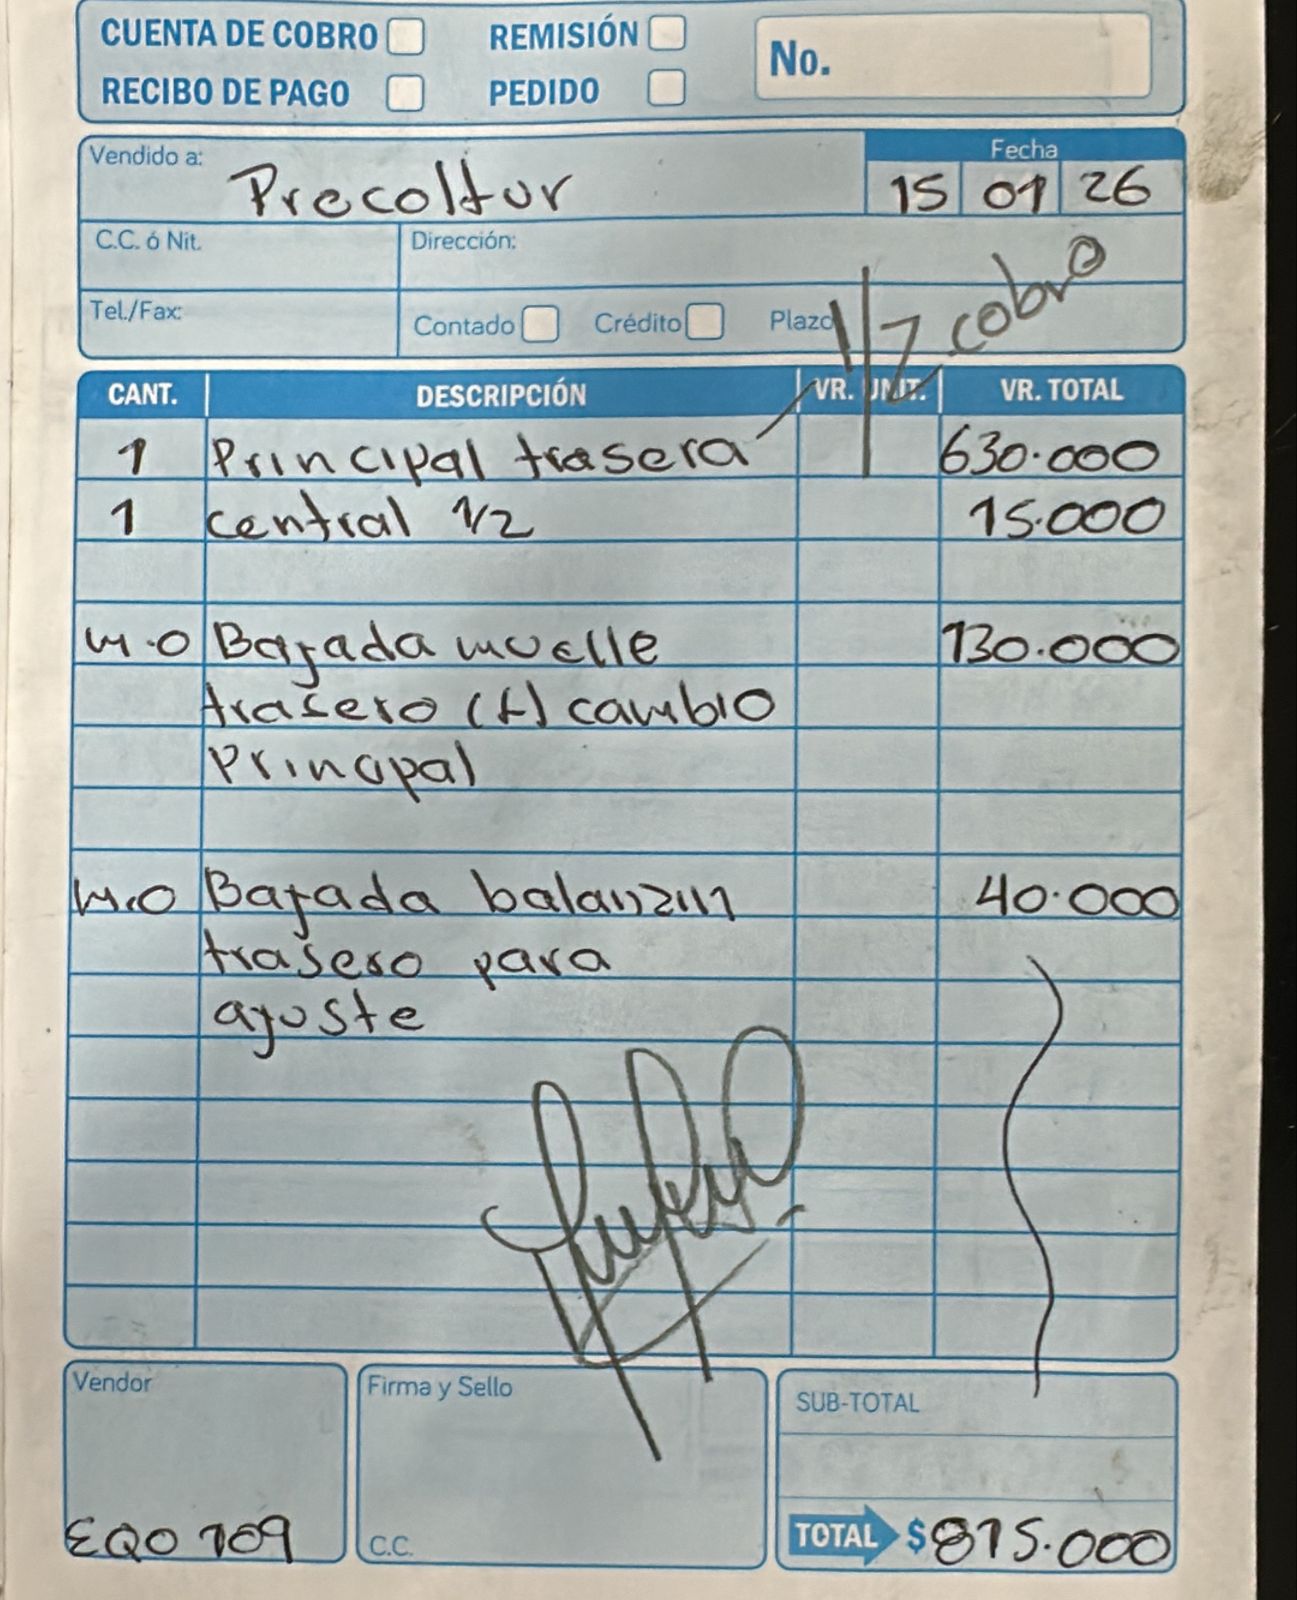 CUENTA DE COBRO REMISIÓN No.
RECIBO DE PAGO PEDIDO
Vendido a: Precoltur Fecha
15 01 26
C.C. ó Nit. Dirección:
Tel./Fax: Contado Crédito Plazo
cobro
CANT. DESCRIPCIÓN VR. UNIT. VR. TOTAL
1 Principal trasera 630.000
1 central 1/2 15.000
M.O Bajada muelle 130.000
trasero (t) cambio
Principal
M.O Bajada balanzin 40.000
trasero para
ajuste
Vendor Firma y Sello SUB-TOTAL
EQO 109 C.C. TOTAL $ 815.000